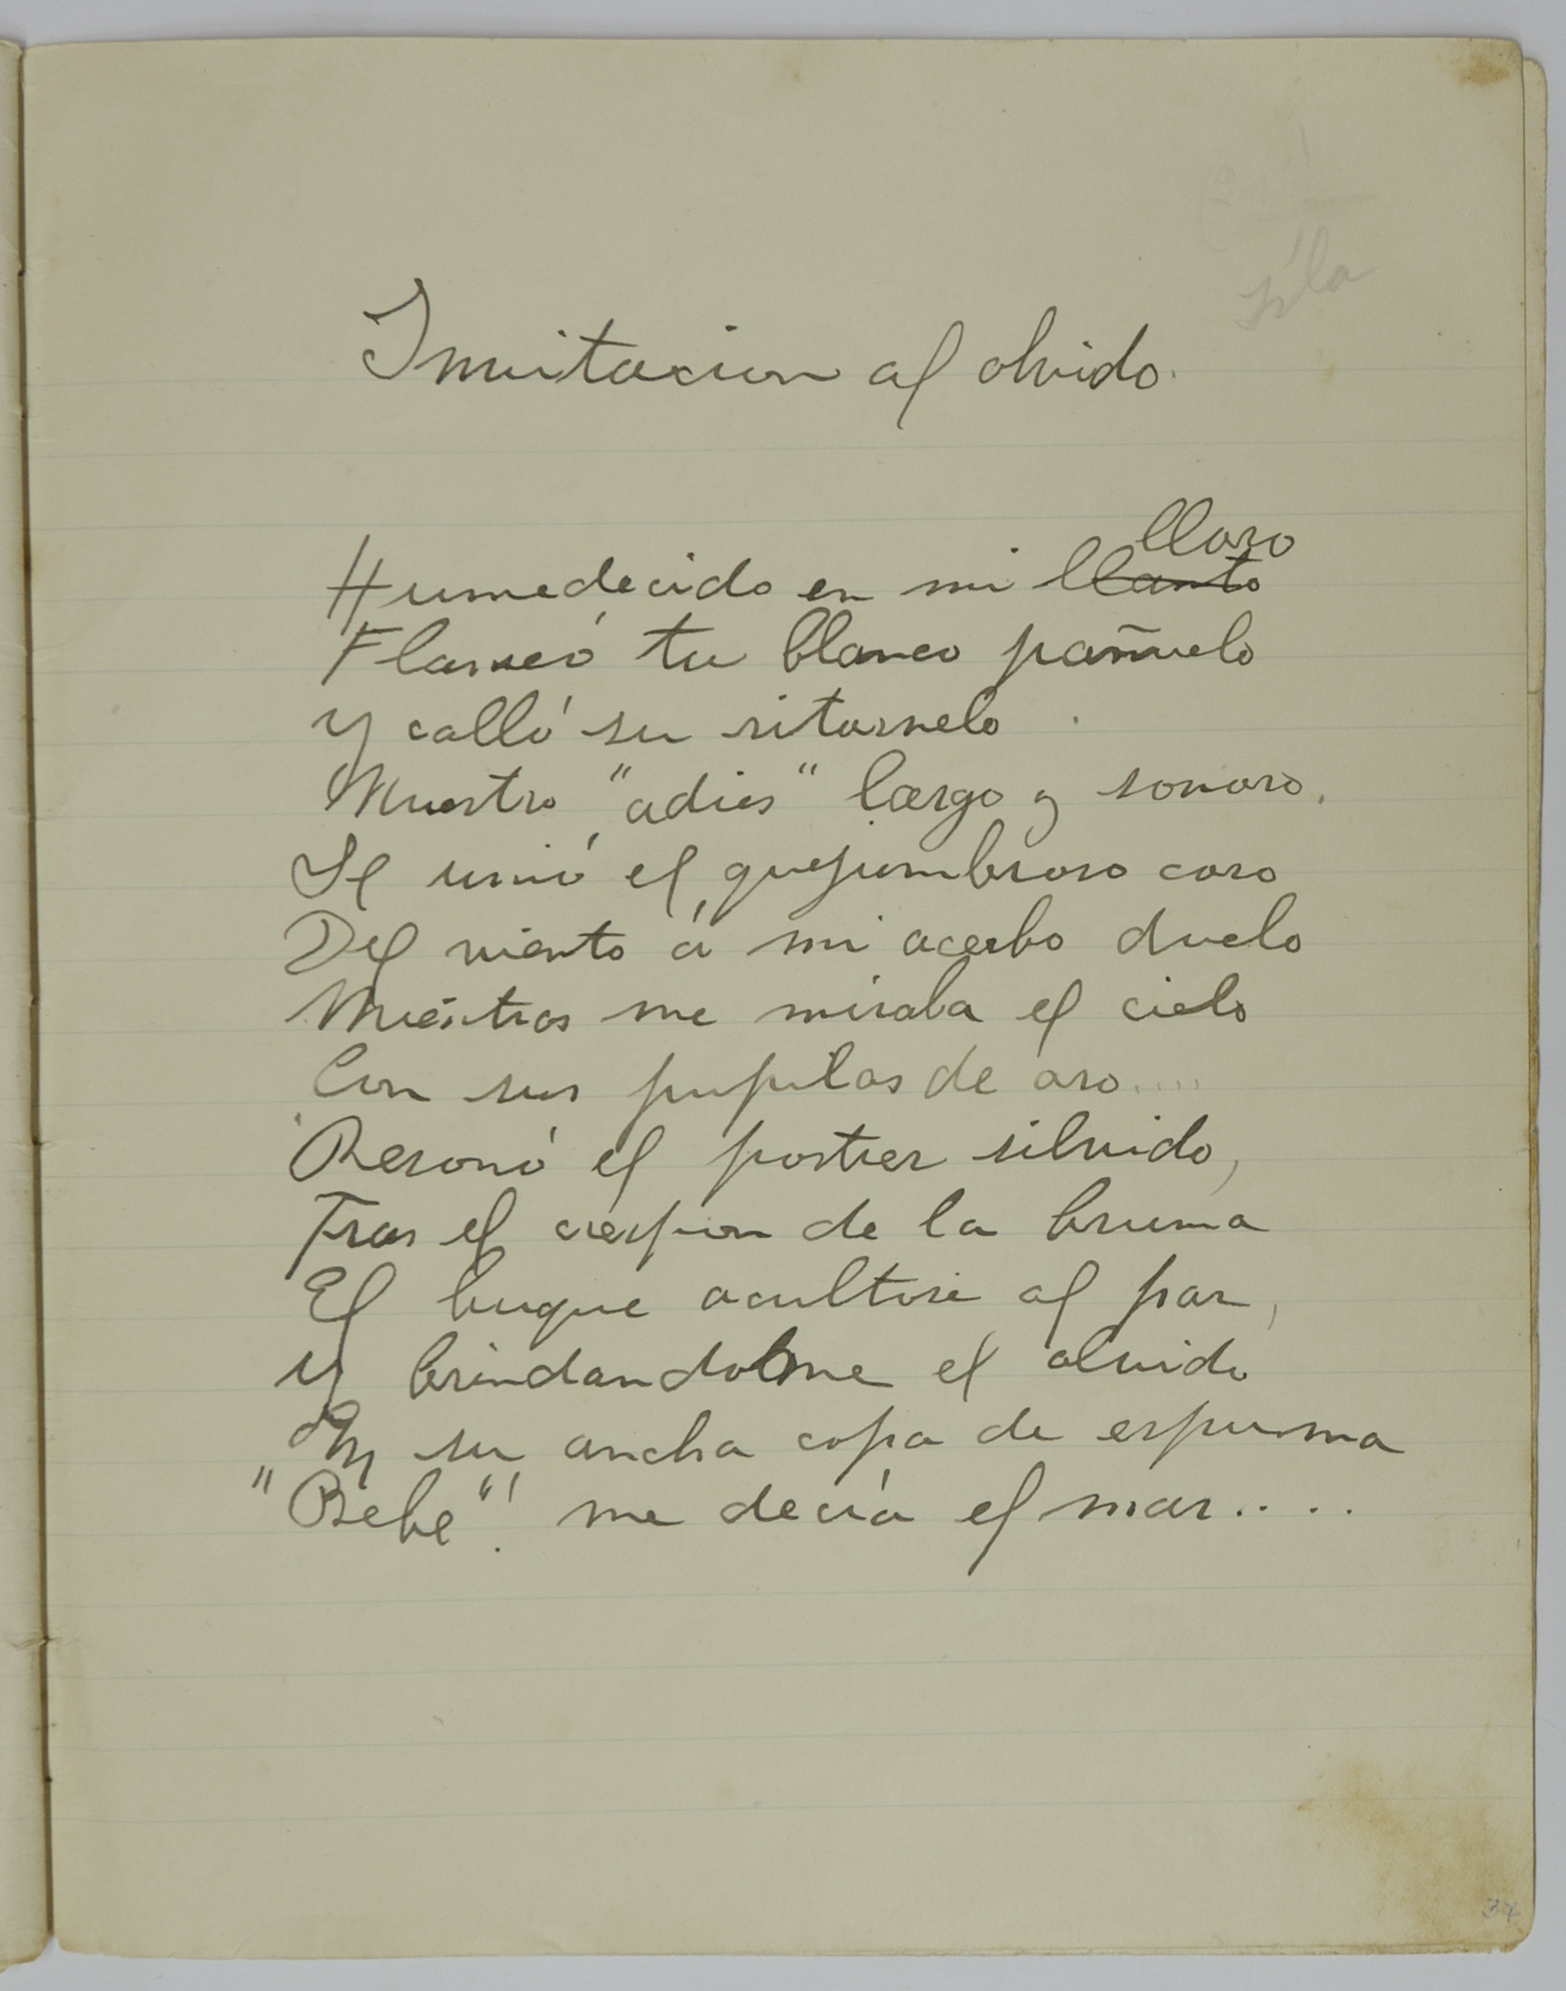 Invitacion al olvido.
lloro
Humedecido en mi llanto
Flameó tu blanco pañuelo
y calló su ritornelo
Nuestro "adios" largo y sonoro.
Se unió el quejumbroso coro
Del viento á mi acerbo duelo
Mientras me miraba el cielo
Con sus pupilas de oro....
Resonó el postrer silvido,
Tras el crespon de la bruma
El buque ocultose al par,
y brindandome el olvido
En su ancha copa de espuma
"Bebe"! me decía el mar....
37